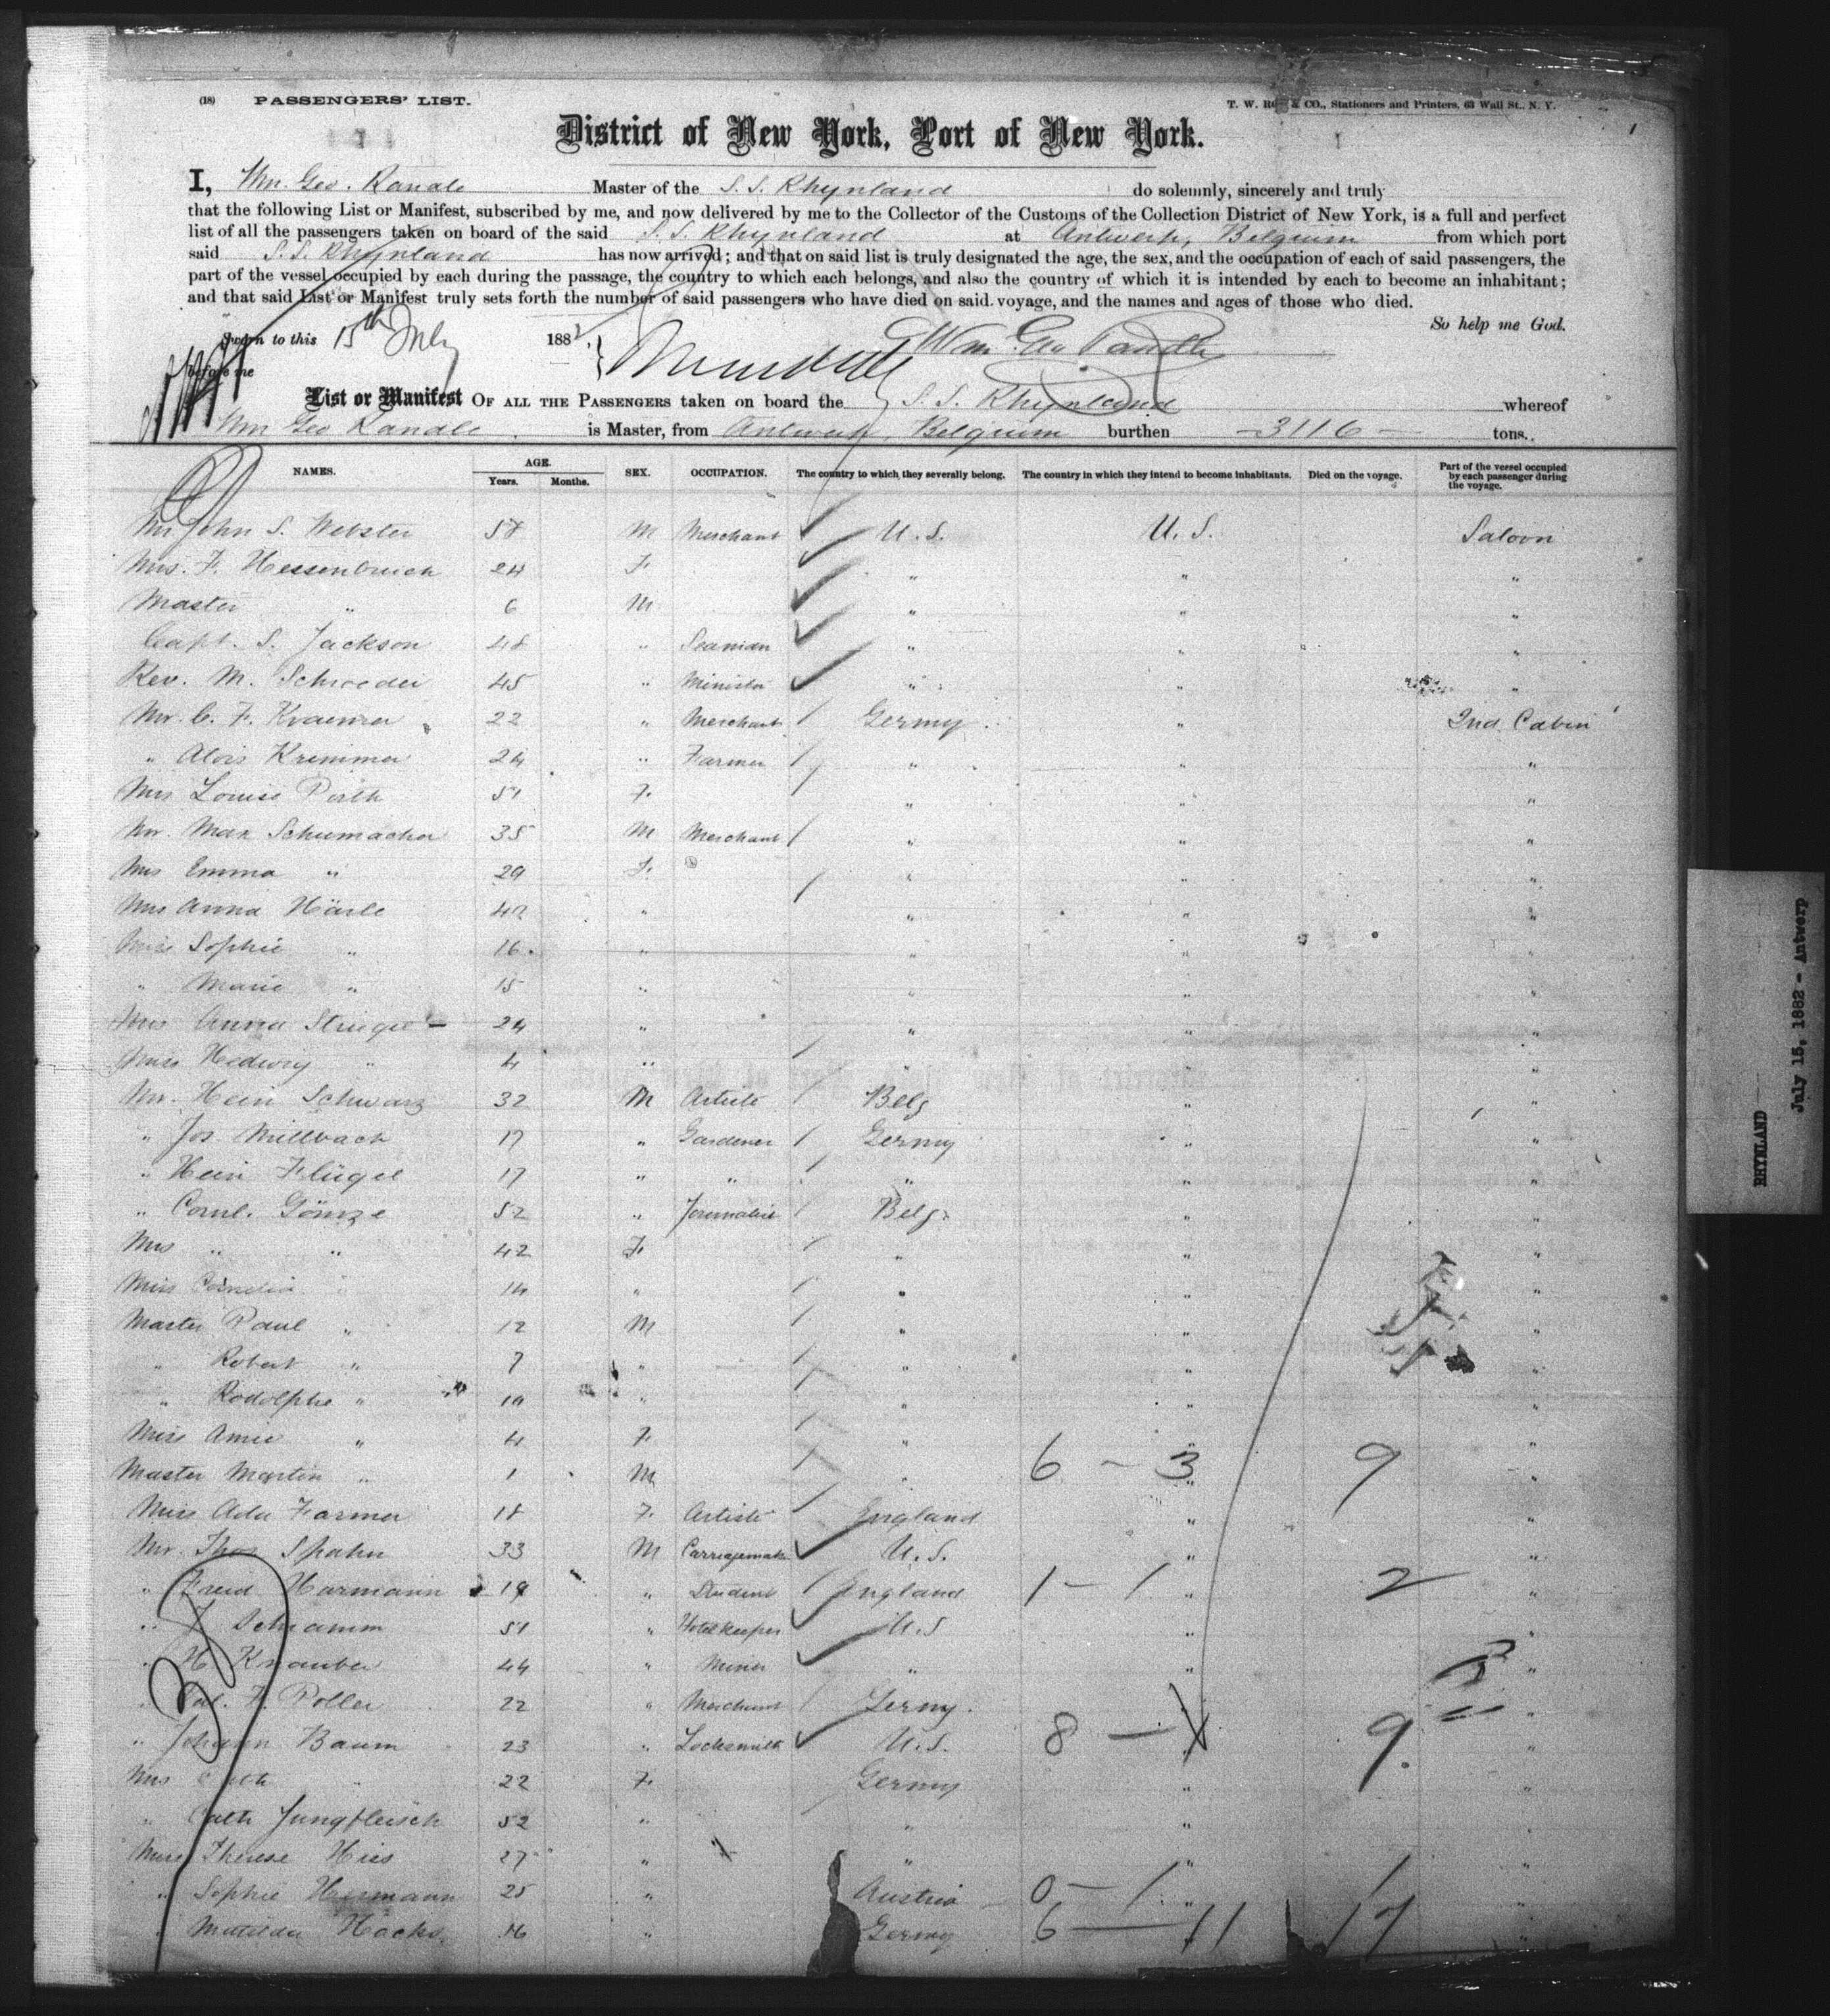 (18) PASSENGERS' LIST.
T. W. & CO., Stationers and Printers, 63 Wall St., N. Y.
1
District of New York, Port of New York.
I, Wm. Geo. Randle Master of the S.S. Rhynland do solemnly, sincerely and truly
that the following List or Manifest, subscribed by me, and now delivered by me to the Collector of the Customs of the Collection District of New York, is a full and perfect
list of all the passengers taken on board of the said S.S. Rhynland at Antwerp, Belgium from which port
said S.S. Rhynland has now arrived; and that on said list is truly designated the age, the sex, and the occupation of each of said passengers, the
part of the vessel occupied by each during the passage, the country to which each belongs, and also the country of which it is intended by each to become an inhabitant;
and that said List or Manifest truly sets forth the number of said passengers who have died on said voyage, and the names and ages of those who died.
So help me God.
Sworn to this 15th July 1882
before me
Wm. Geo Randle
List or Manifest OF ALL THE PASSENGERS taken on board the S.S. Rhynland whereof
Wm Geo Randle is Master, from Antwerp, Belgium burthen 3116 tons.
NAMES. AGE. Years. Months. SEX. OCCUPATION. The country to which they severally belong. The country in which they intend to become inhabitants. Died on the voyage. Part of the vessel occupied by each passenger during the voyage.
Mr John S. Webster 58 M Merchant U.S. U.S. Saloon
Mrs. F. Hessenbruch 24 F. " " "
Master " 6 M " " "
Capt. S. Jackson 48 " Seaman " " "
Rev. M. Schroeder 45 " Minister " " "
Mr. C. F. 22 " Merchant Germy " 2nd Cabin
" Alois Krimmer 24 " Farmer " " "
Mrs Louise 51 F. " " "
Mr. Max Schumacher 35 M Merchant " " "
Mrs Emma " 29 F. " " "
Mrs Anna Härle 42 " " " "
Miss Sophie " 16 " " " "
" Marie " 15 " " " "
Mrs Anna 24 " " " "
Miss Hedwig " 4 " " " "
Mr. Hein Schwarz 32 M Artiste Belg " "
" Jos. Millbach 17 " Gardener Germy " "
" Hein Flügel 17 " " " " "
" Cornl. Gömze 52 " Journalist Belg. " "
Mrs " " 42 F. " " "
Miss Cornelia " 14 " " " "
Master Paul " 12 M " " "
" Robert " 7 " " " "
" Rodolphe " 10 " " " "
Miss Amie " 4 F. " " "
Master Martin " 1 M " " "
6 - 3 9
Miss Ada Farmer 18 F. Artiste England " "
Mr. Thos Spahn 33 M Carriagemaker U.S. " "
" Fred Harmann 19 " Student England " "
1 - 1 2
" J. Schramm 51 " Hotelkeeper U.S. " "
" H. Knauber 44 " Miner " " "
" F. Poller 22 " Merchant Germy. " "
" Johann Baum 23 " Locksmith U.S. " "
8 - 1 9.
Mrs Cath " 22 F. Germy " "
" Cath Jungfleisch 52 " " " "
Miss Therese Hies 27 " " " "
" Sophie Hermann 25 " Austria " "
0 - 1 1
" Matilda Hacks 46 " Germy " "
6 - 11 17
RHYNLAND
July 15, 1882 - Antwerp